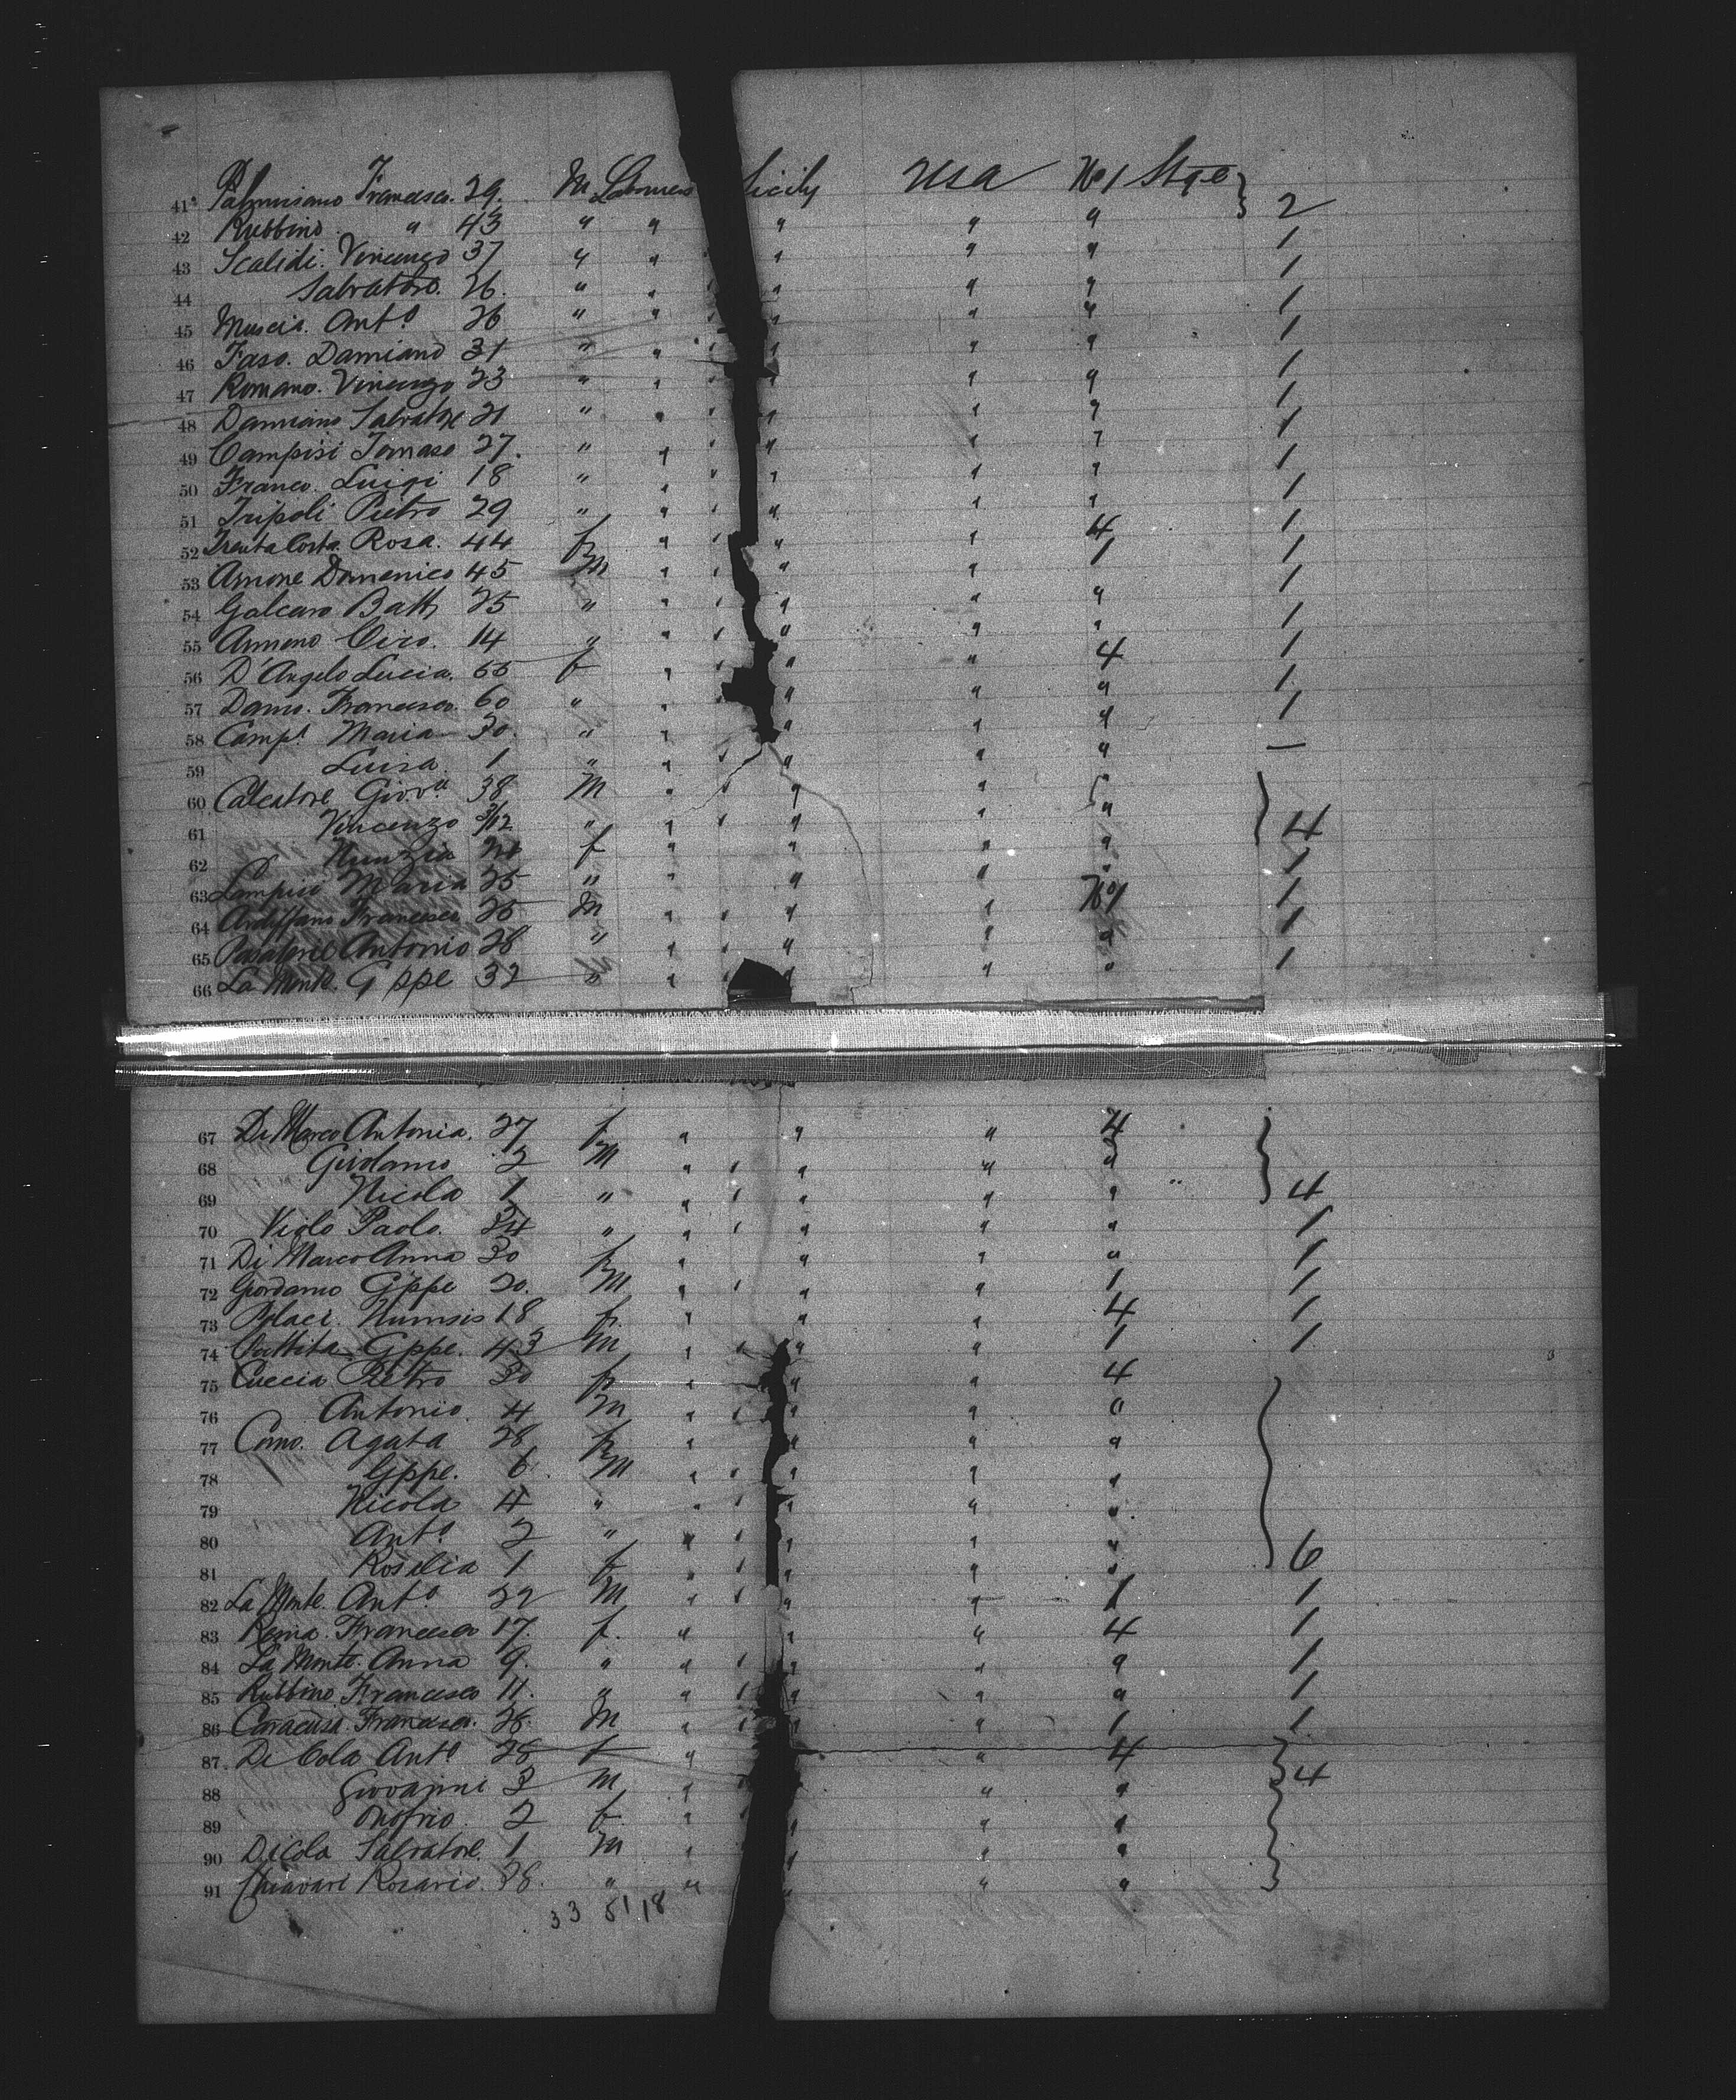 41 Palmisano Francesco. 29. M Laborers Sicily USA No 1 Stge } 2
42 Rubbino " 43 " " " " "
43 Scalidi. Vincenzo 37 " " " " " 1
44 Salvatore. 26. " " " " " 1
45 Muscia. Anto 26 " " " " " 1
46 Faso. Damiano 31 " " " " " 1
47 Romano. Vincenzo 23 " " " " " 1
48 Damiano Salvatore 21 " " " " " 1
49 Campisi Tomaso 27. " " " " " 1
50 Franco. Luigi 18 " " " " " 1
51 Tripoli Pietro 29 " " " " " 1
52 Trenta Costa. Rosa. 44 f " " " 4 1
53 Amone Domenico 45 M " " " 1 1
54 Galcaro Batt 25 " " " " " 1
55 Ameno Ciro. 14 " " " " " 1
56 D'Angelo Lucia. 55 f " " " 4 1
57 Damo. Francesca. 60 " " " " " 1
58 Camp. Maria 30. " " " " " 1
59 Luisa 1 " " " " " —
60 Calcatore Giova 38 M " " " "
61 Vincenzo 3/12 " " " " " 4
62 Nunzia 24 f " " " "
63 Lampisi Maria 25 " " " " " 1
64 Francesco 26 M " " " No 1 1
65 Antonio 28 " " " " " 1
66 La Monte. Gppe 32 " " " " " 1
67 Di Marco Antonia. 27 f " " " 4
68 Girolamo 2 M " " " "
69 Nicola 1 " " " " " 4
70 Viola Paolo. 24 " " " " " 1
71 Di Marco Anna 30 f " " " " 1
72 Giordano Gppe 20. M " " " 1 1
73 Polaci. 18 f. " " " 4 1
74 Gppe. 43 M " " " 1 1
75 Cuccia Pietro 30 f " " " 4
76 Antonio. 4 M " " " "
77 Como. Agata 28 f " " " "
78 Gppe. 6 M " " " "
79 Nicola 4 " " " " "
80 Anto 2 " " " " "
81 Roselia 1 f " " " " 6
82 La Monte. Anto 22 M " " " 1 1
83 Francesca 17. f. " " " 4 1
84 La Monte. Anna 9. " " " " " 1
85 Rubbino. Francesco 11. " " " " " 1
86 Caracusa. Francesco. 28. M " " " 1 1
87 Di Cola Anto 28 f " " 4 } 4
88 Giovanni 3 M " " "
89 Onofrio. 2 f " " " "
90 DiCola Salvatore. 1 M " " " "
91 Chiavari Rosario. 38. " " " " "
33 51 18